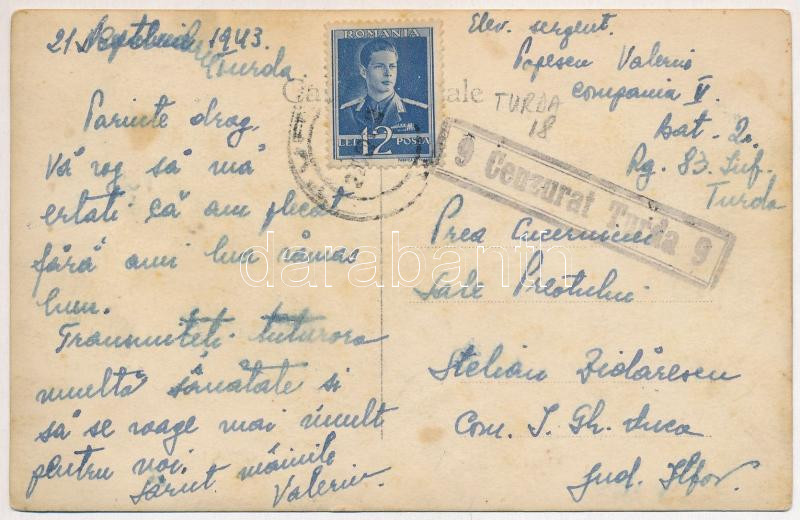 21 Septembrie 1943.
Tourda
Parinte drag,
Vă rog să mă
ertati că am plecat
fără ami lua rămas
bun.
Transmiteti tuturora
multă sănătate si
să se roage mai mult
pentru noi.
Sărut mâinile
Valeriu.
ROMANIA
LEI 12 POSTA
Ca ale
TURDA
18
Elev. sergent.
Popescu Valeriu
Compania V.
Bat. 2.
Rg. 83. Inf.
Turda
9 Cenzurat Turda 9
Prea Cucerniciei
Sale Preotului
Stelian Zidărescu
Com. I. Gh. Duca
Jud. Ilfov.
darabanth